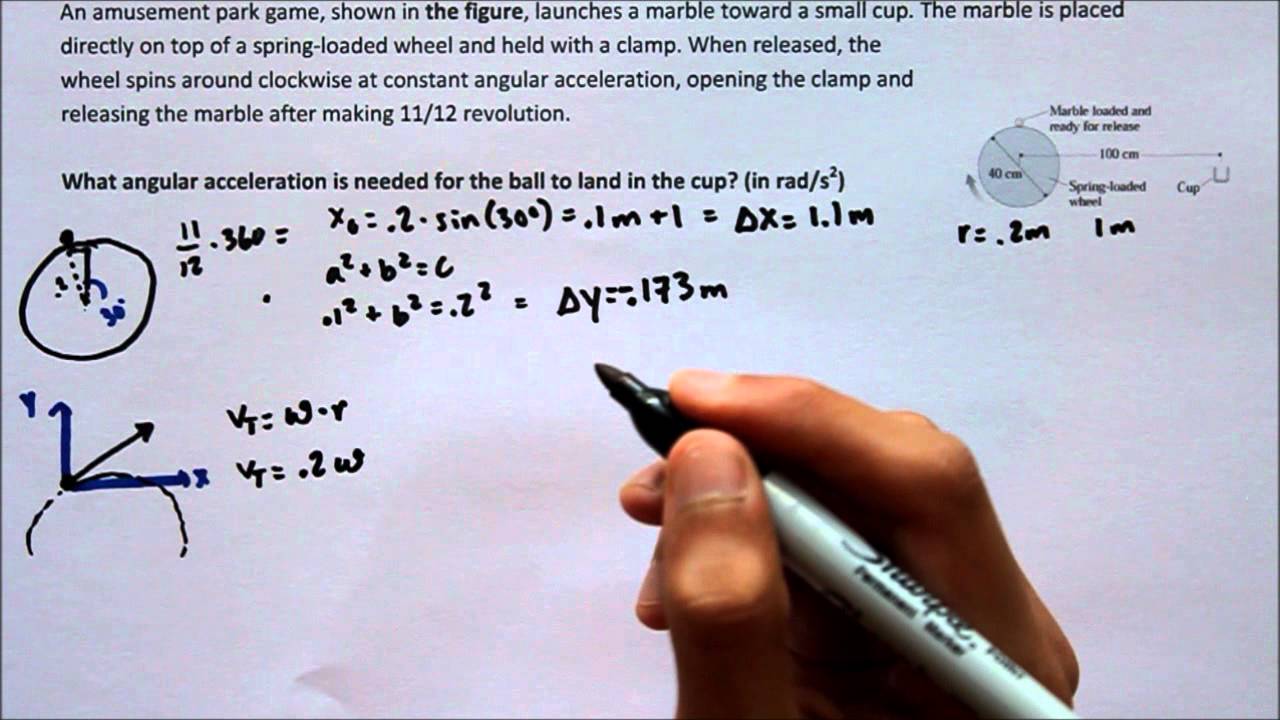 An amusement park game, shown in the figure, launches a marble toward a small cup. The marble is placed
directly on top of a spring-loaded wheel and held with a clamp. When released, the
wheel spins around clockwise at constant angular acceleration, opening the clamp and
releasing the marble after making 11/12 revolution.
Marble loaded and
ready for release
100 cm
40 cm
Spring-loaded
wheel
Cup
What angular acceleration is needed for the ball to land in the cup? (in rad/s²)
r = .2m 1m
11/12 · 360 =
x₀ = .2 · sin(30°) = .1m + 1 = Δx = 1.1m
a² + b² = c
.1² + b² = .2² = Δy = -.173m
.2
30°
Y
X
V_T = ω · r
V_T = .2ω
Sharpie
Permanent Marker